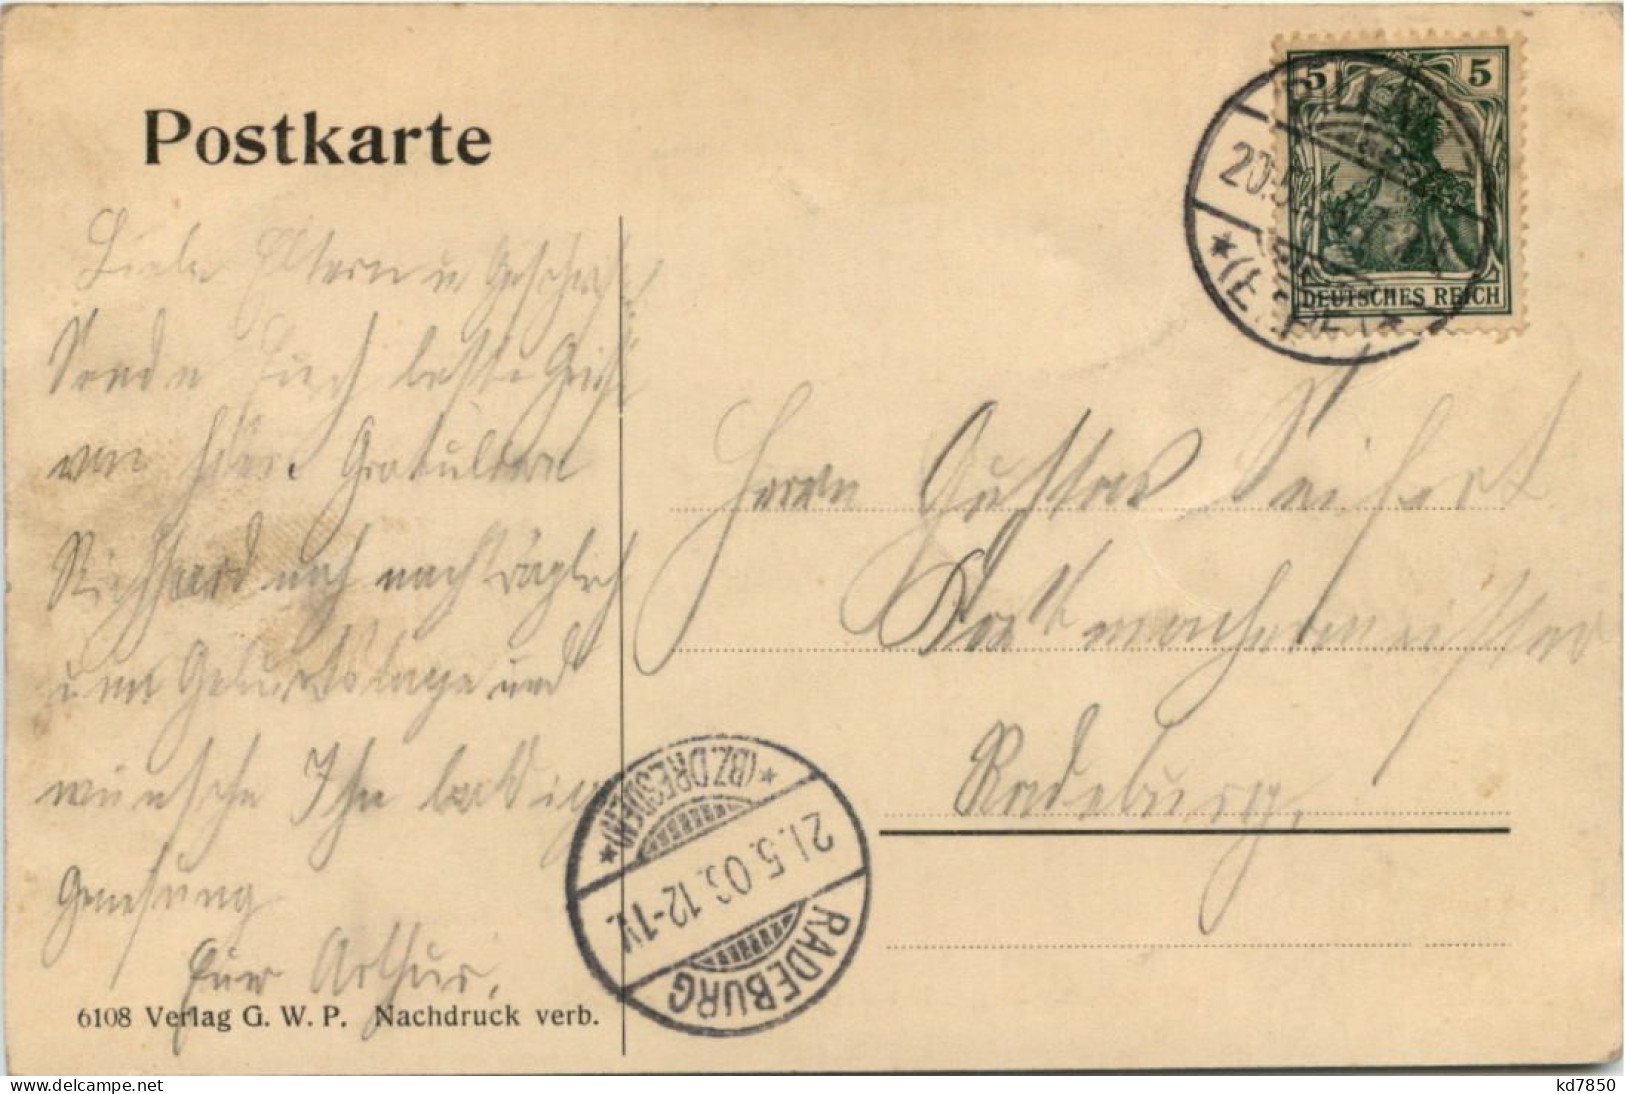 Postkarte
5 5
DEUTSCHES REICH
20.5.
Liebe Eltern u Geschw.
Sende Euch beste Grüße
von hier. Gratuliere
Richhard noch nachträglich
zum Geburtstage und
wünsche Ihm baldige
Genesung
Euer Arthur.
Herrn Gustav Seifert
Korbmachermeister
Radeburg.
*(BZ. DRESDEN)*
21.5.06. 12-1N.
RADEBURG
6108 Verlag G. W. P. Nachdruck verb.
www.delcampe.net
kd7850